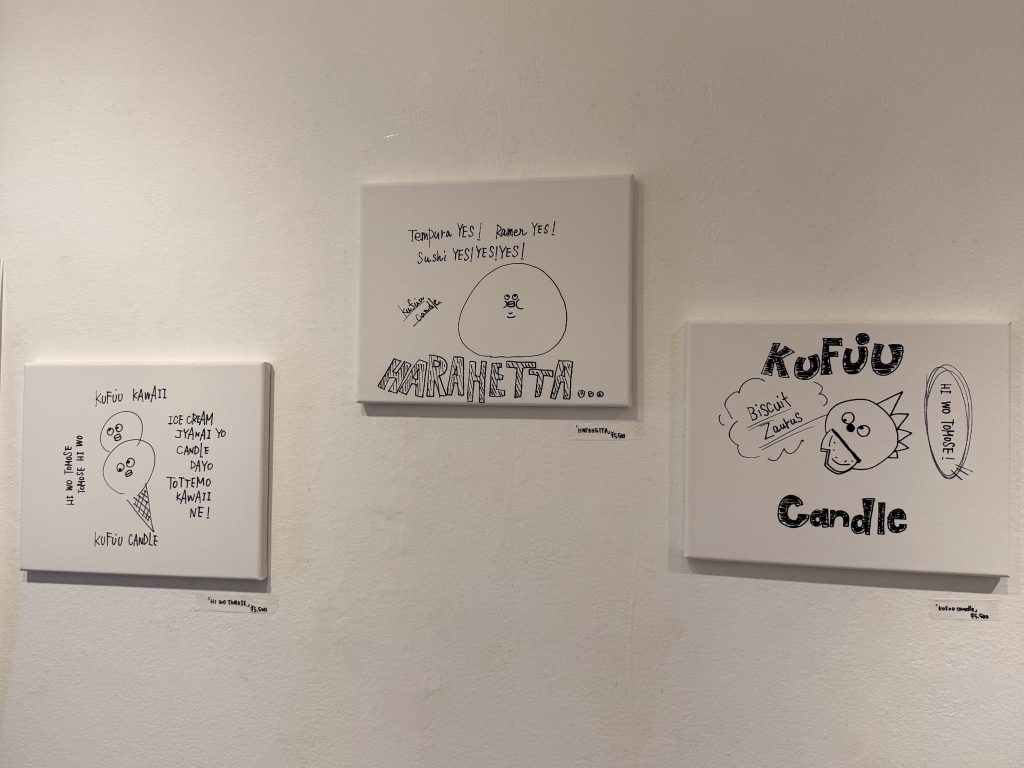 KUFUU KAWAII
HI WO TOMOSE
TOMOSE HI WO
ICE CREAM
JYANAI YO
CANDLE
DAYO
TOTTEMO
KAWAII
NE!
KUFUU CANDLE
「HI WO TOMOSE」
¥5,500
Tempura YES! Ramen YES!
Sushi YES!YES!YES!
kufuu
candle
HARAHETTA...
「HARAHETTA」
¥5,500
KUFUU
Biscuit
Zaurus
HI WO TOMOSE!
Candle
「KUFUU Candle」
¥5,500